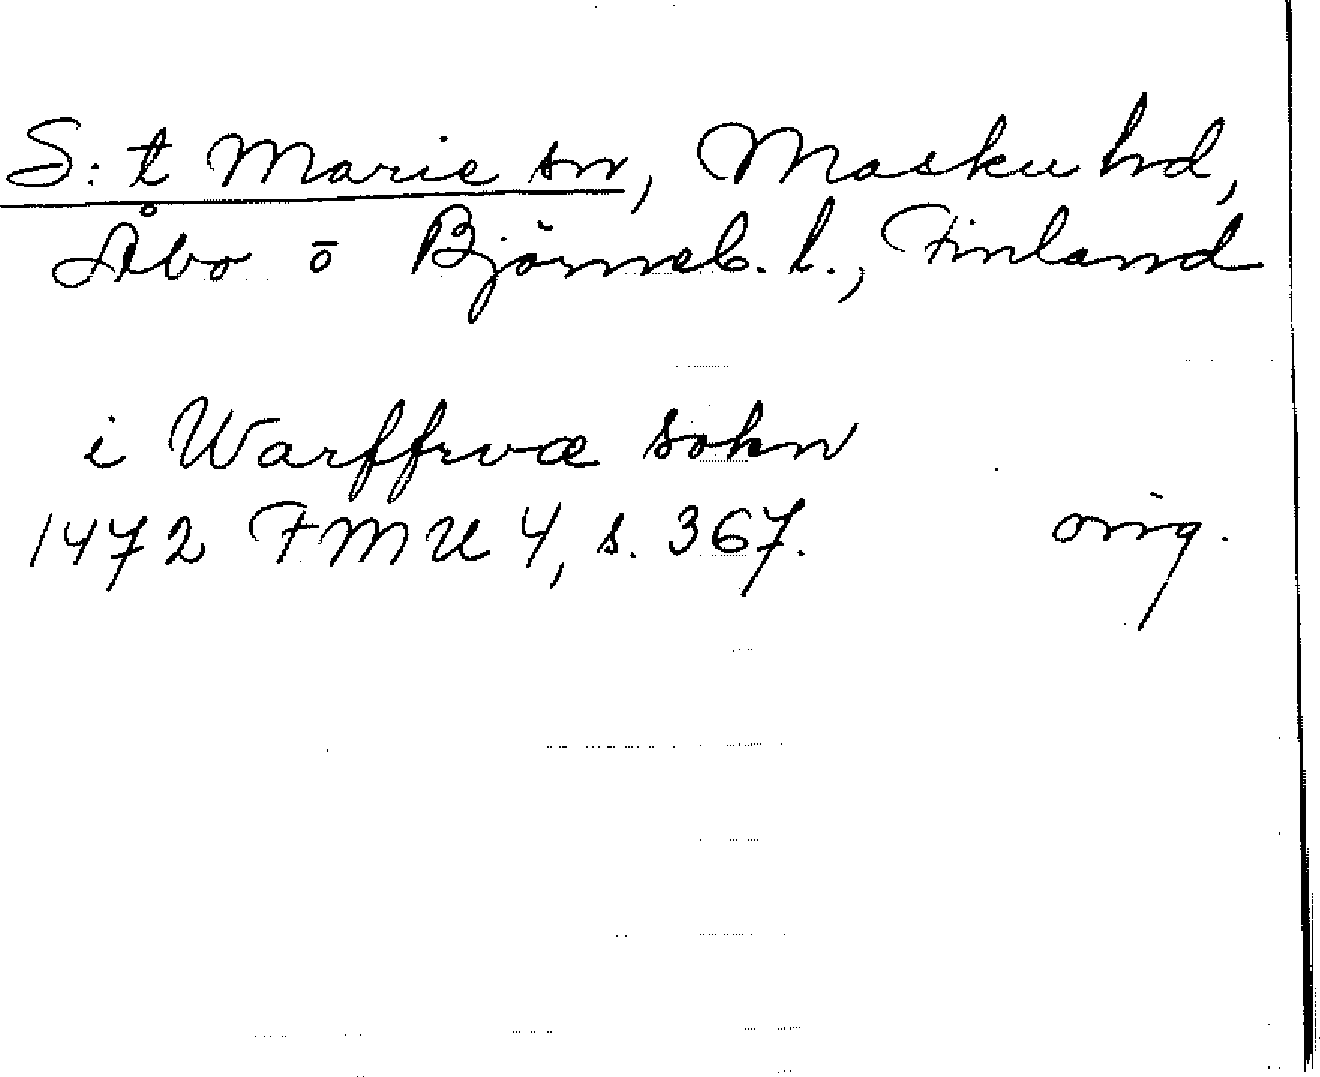 S:t Marie sn, Masku hd,
Åbo o Björneb. l., Finland
i Warffrvæ sokn
1472 FMU 4, s. 367. orig.